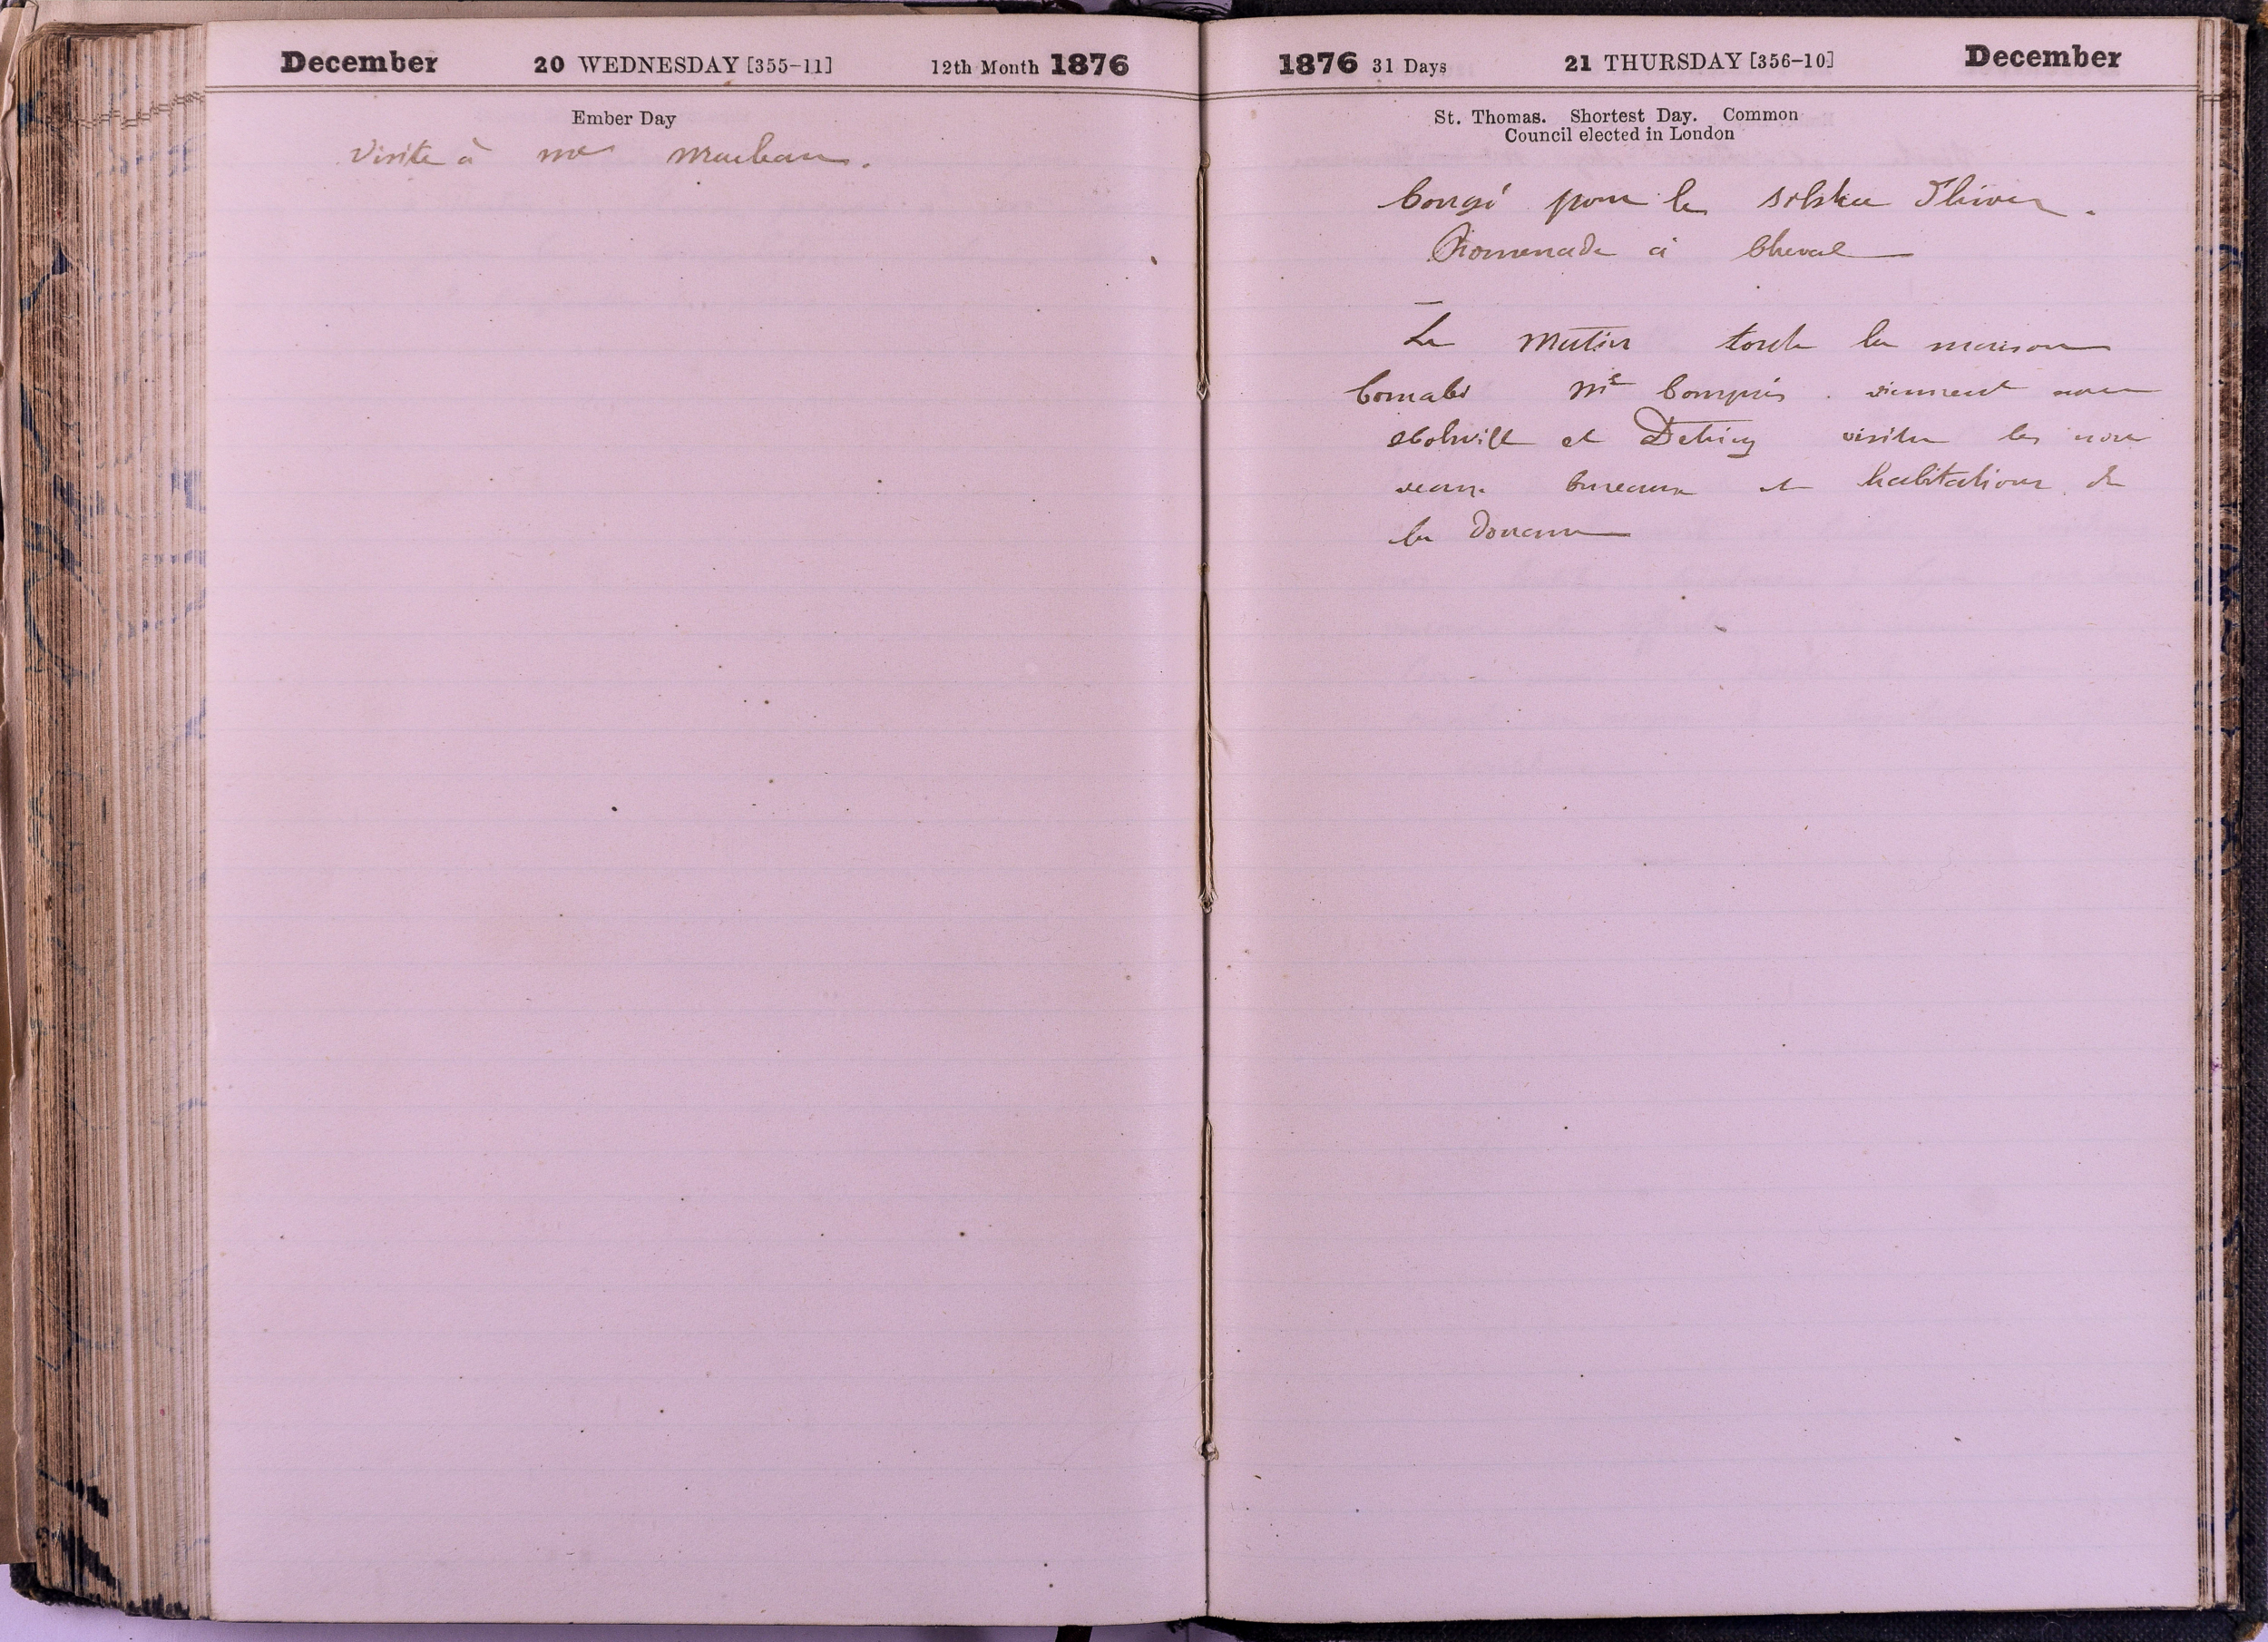 December 20 WEDNESDAY [355-11] 12th Month 1876
Ember Day
Visite à me
1876 31 Days 21 THURSDAY [356-10] December
St. Thomas. Shortest Day. Common
Council elected in London
Congé pour le solstice d'hiver.
Promenade à Cheval
Le matin toute la maison
Mr Compris. viennent avec
et Detring visiter les nou
veaux bureaux et habitations de
la Douane